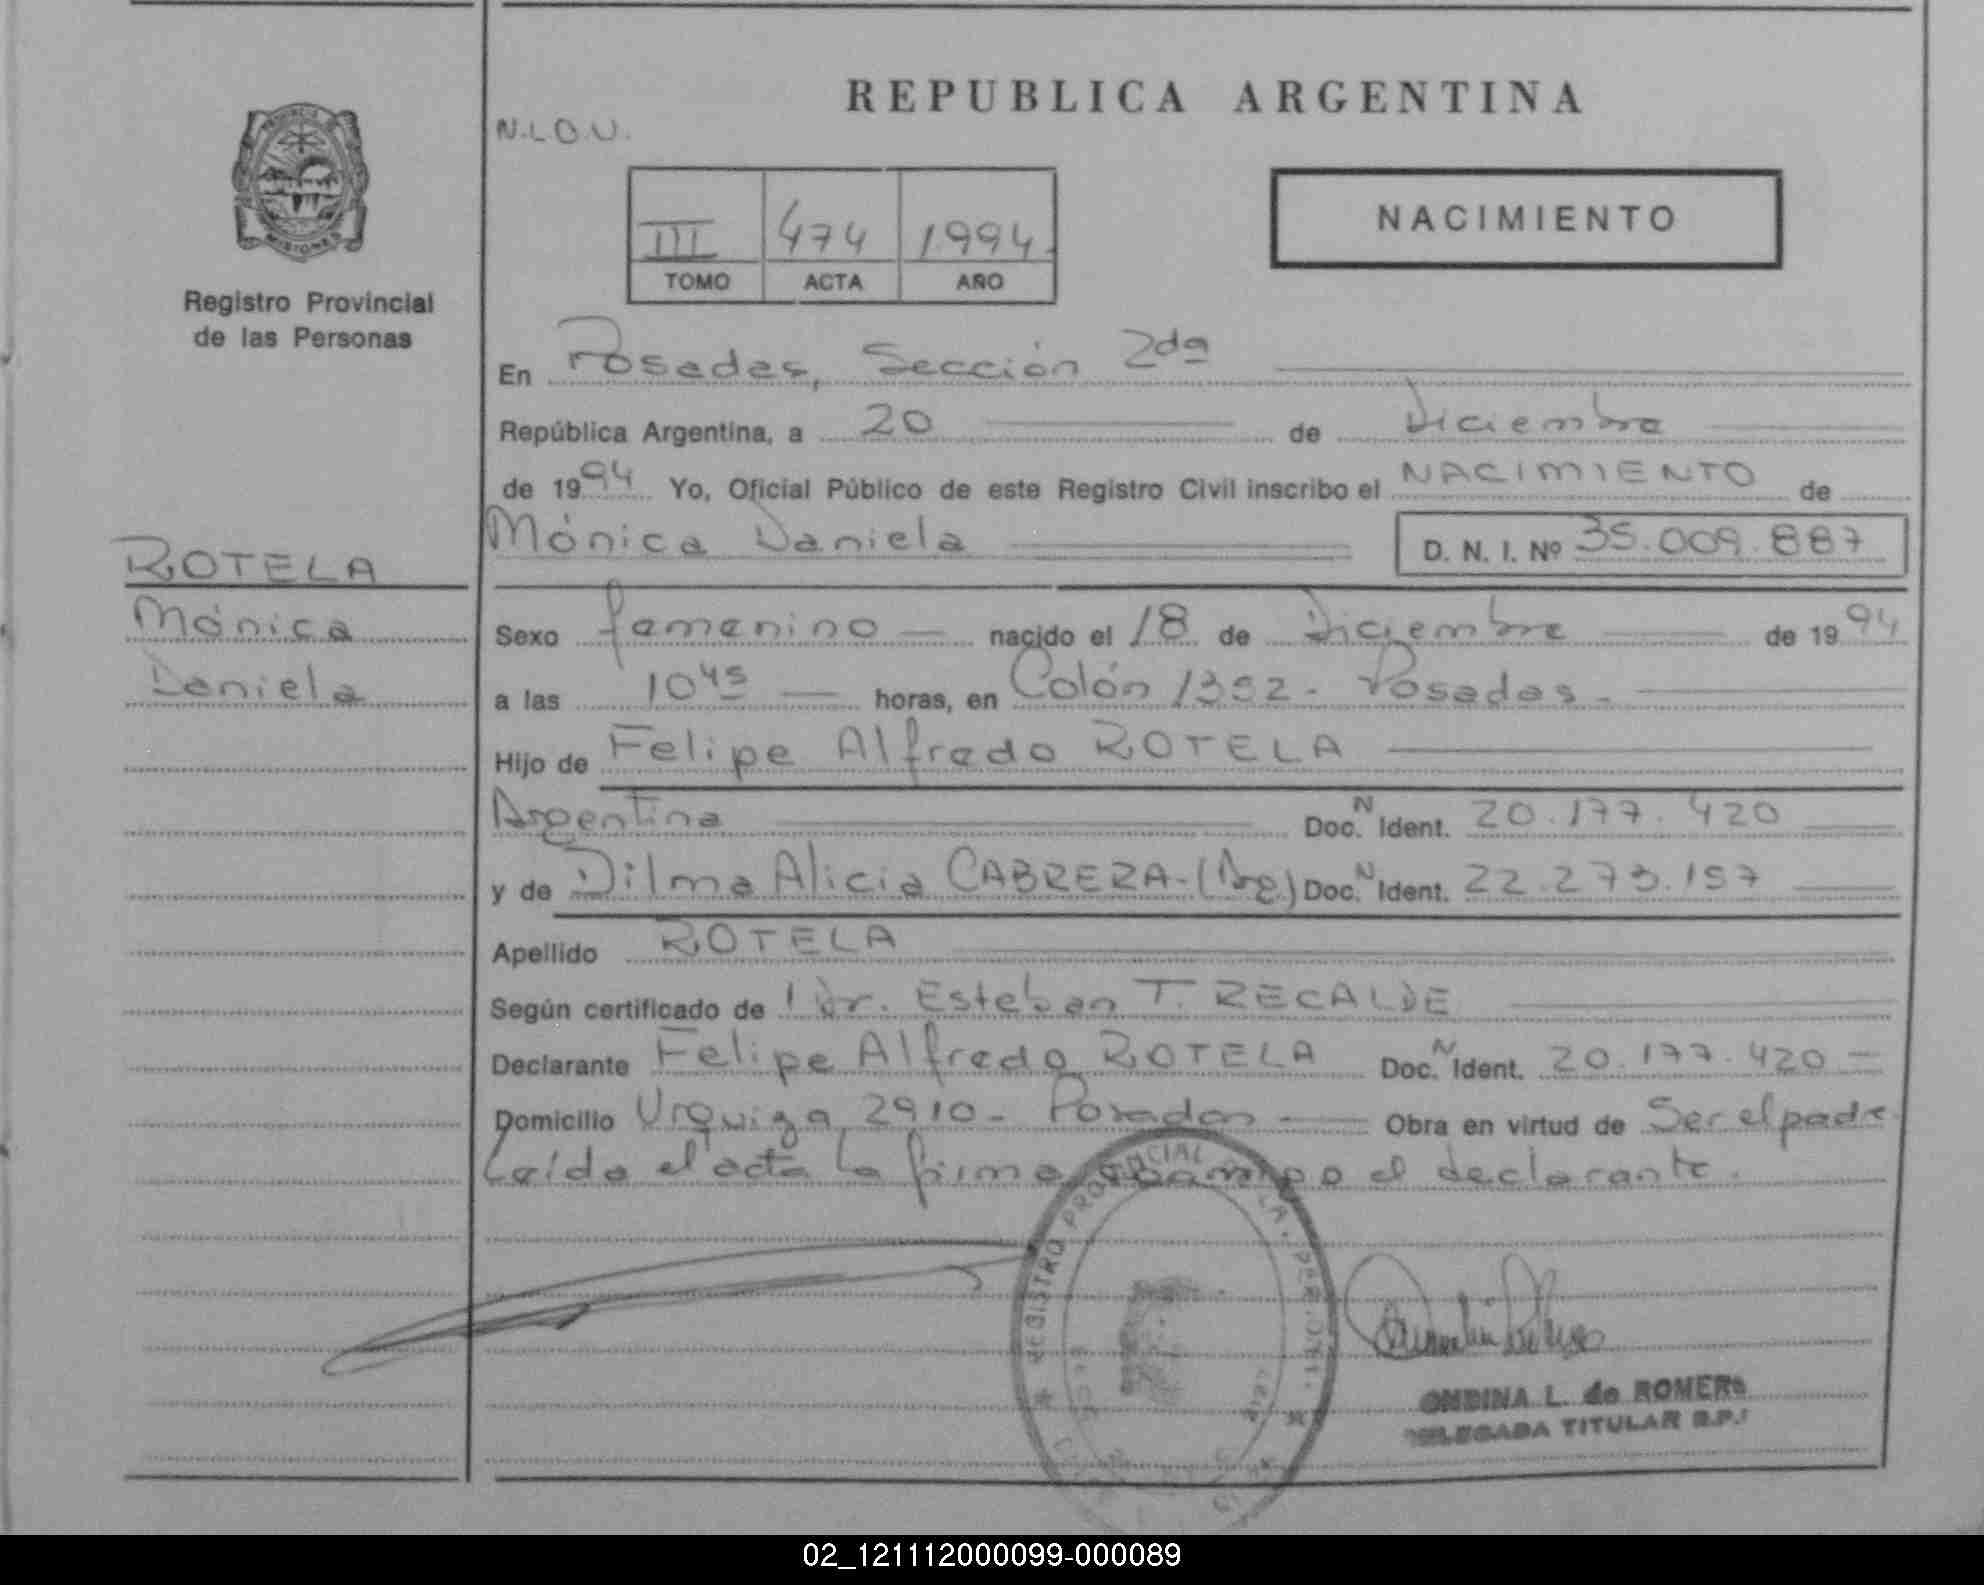 REPUBLICA ARGENTINA
N.L.O.U.
III 474 1994
TOMO ACTA AÑO
NACIMIENTO
MISIONES
Registro Provincial
de las Personas
En Posadas, Sección 2da
República Argentina, a 20 de Diciembre
de 1994 Yo, Oficial Público de este Registro Civil inscribo el NACIMIENTO de
Mónica Daniela D. N. I. Nº 35.009.887
ROTELA
Mónica
Daniela
Sexo femenino nacido el 18 de Diciembre de 1994
a las 10 45 horas, en Colón 1352 - Posadas -
Hijo de Felipe Alfredo ROTELA
Argentina Doc. N Ident. 20.177.420
y de Dilma Alicia CABRERA - (Arg) Doc. N Ident. 22.273.157
Apellido ROTELA
Según certificado de Dr. Esteban T. RECALDE
Declarante Felipe Alfredo ROTELA Doc. N Ident. 20.177.420
Domicilio Urquiza 2910 - Posadas Obra en virtud de Ser el padre
Leída el acta la firma conmigo el declarante.
REGISTRO PROVINCIAL
ONDINA L. de ROMERO
DELEGADA TITULAR
02_121112000099-000089